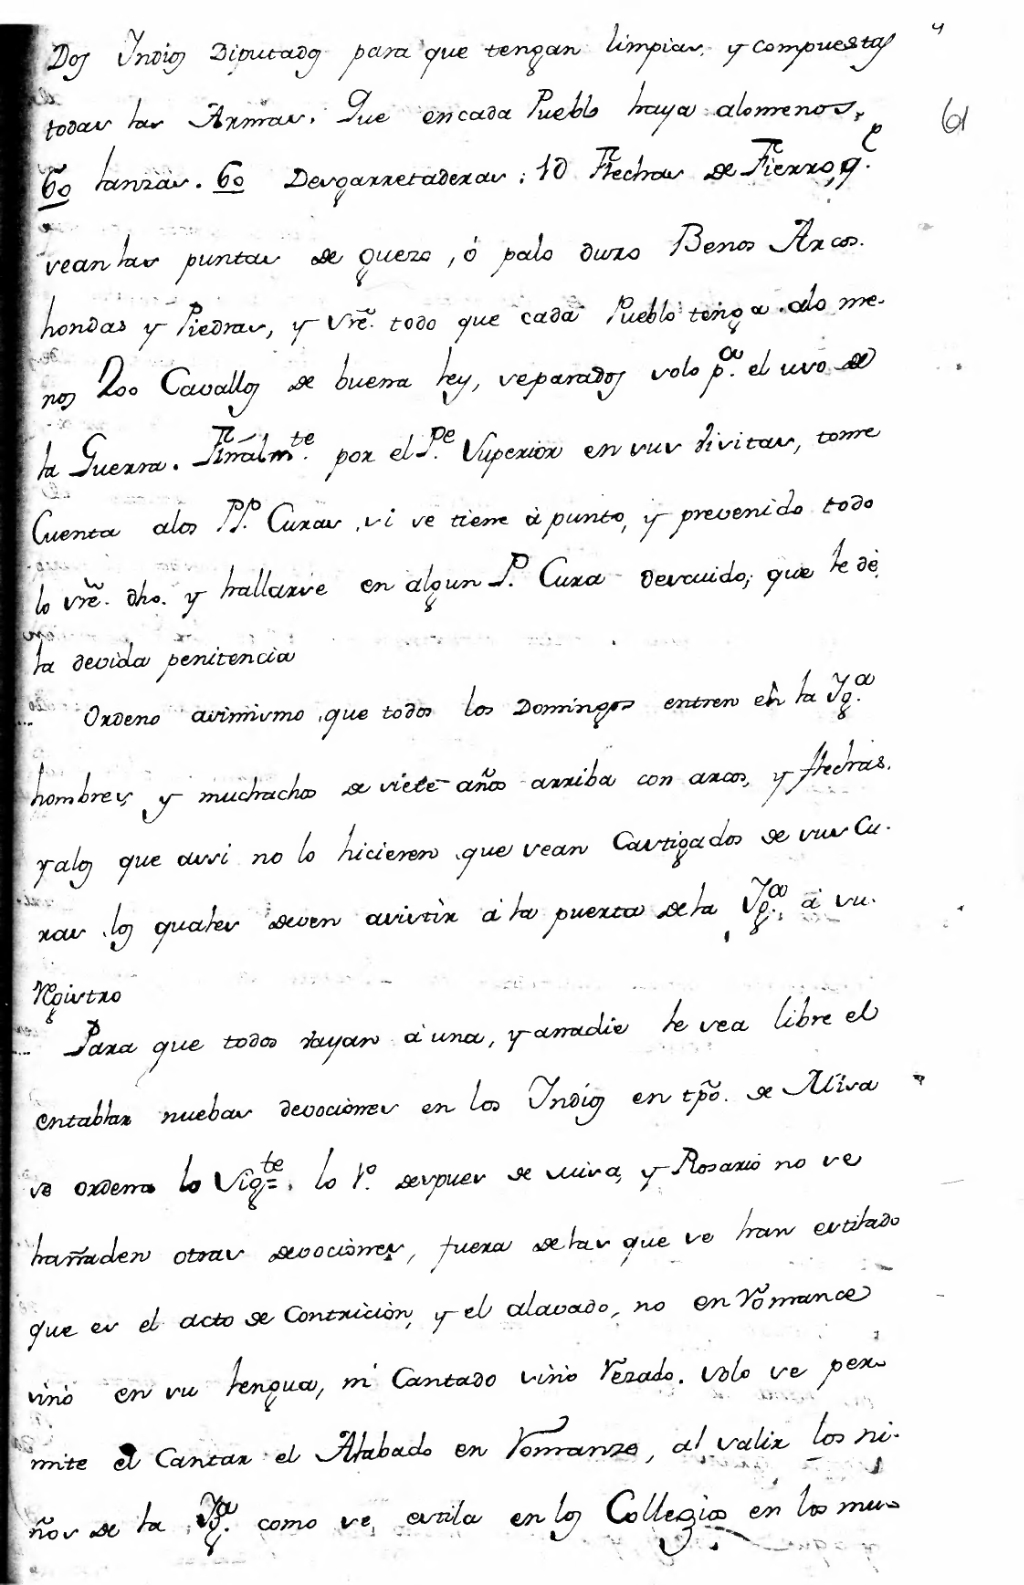 4
61
Dos Indios Diputados para que tengan limpias, y compuestas
todas las Armas. Que encada Pueblo haya alomenos,
60 lanzas. 60 Desgarretaderas: 10 Flechas de Fierro, q.e
sean las puntas de gueso, ó palo duro Benos Arcos.
hondas y Piedras, y sre. todo que cada Pueblo tenga alo me-
nos 200 Cavallos de buena ley, separados solo p.a el uso de
la Guerra. Finalm.te por el P.e Superior en sus visitas, tome
Cuenta alos PP. Curas, si se tiene à punto, y prevenido todo
lo sre. dho. y hallarse en algun P. Cura descuido, que le dè
la devida penitencia
Ordeno asimismo, que todos los Domingos entren en la Yg.a
hombres, y muchachos de siete años arriba con arcos, y flechas.
yalos que assi no lo hicieren, que sean Castigados de sus Cu-
ras, los quales deven asistir à la puerta dela Yg.a, à su
Registro
Para que todos vayan à una, y anadie le sea libre el
entablar nuebas devociones en los Indios en tpõ. de Missa
se ordena lo Sig.te. lo 1.o despues de missa, y Rosario no se
hañaden otras devociones, fuera delas que se han estilado
que es el acto de Contricion, y el alavado, no en Romance
sinò en su lengua, ni Cantado sinò Rezado. solo se per-
mite el Cantar el Alabado en Romanze, al salir los ni-
ños de la Yg.a como se, estila en los Collegios en los mu-